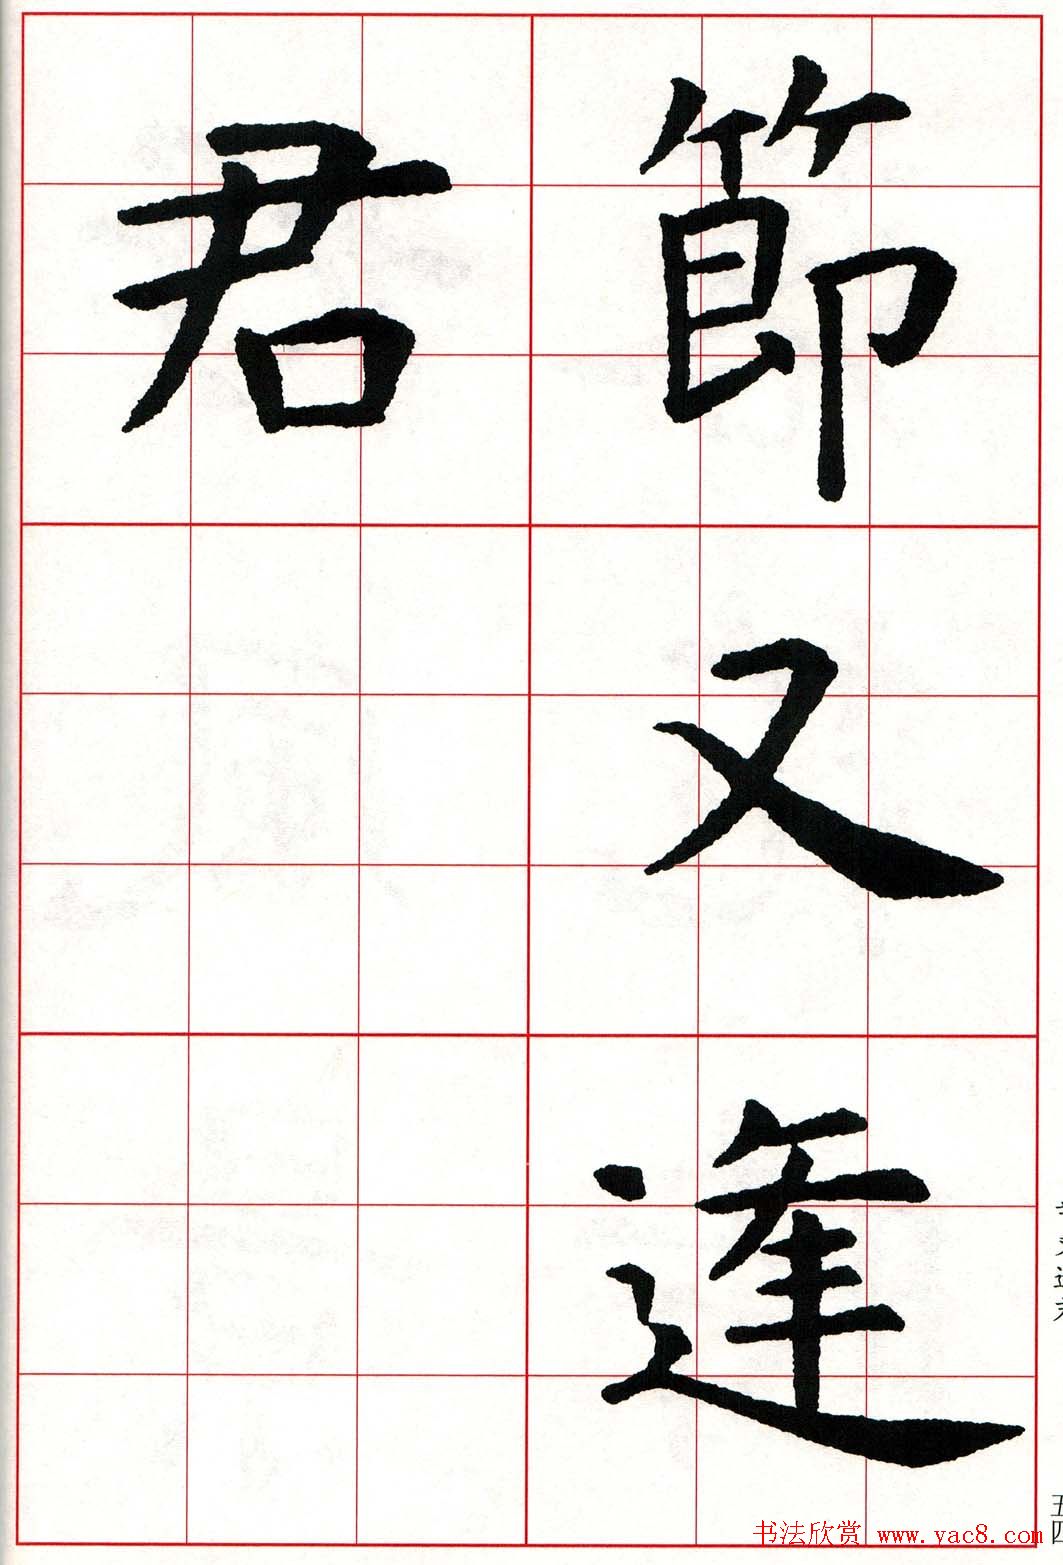 節又逢
君
五四
书法欣赏 www.yac8.com